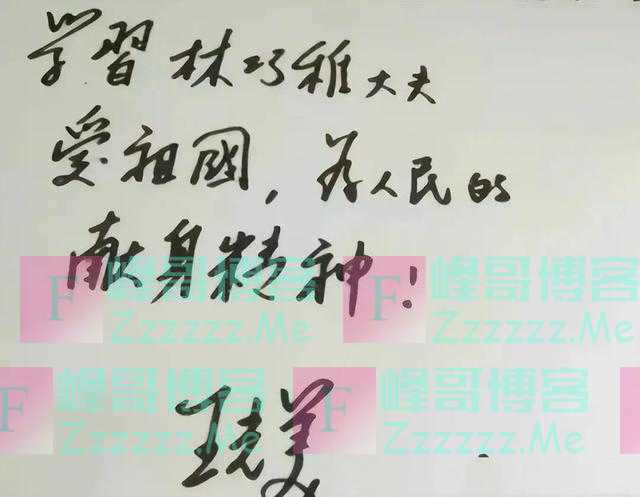 学習林巧稚大夫
爱祖國,为人民的
献身精神!
F 峰哥博客 F 峰哥博客
Zzzzzz.Me Zzzzzz.Me
F 峰哥博客 F 峰哥博客
Zzzzzz.Me Zzzzzz.Me
王光美